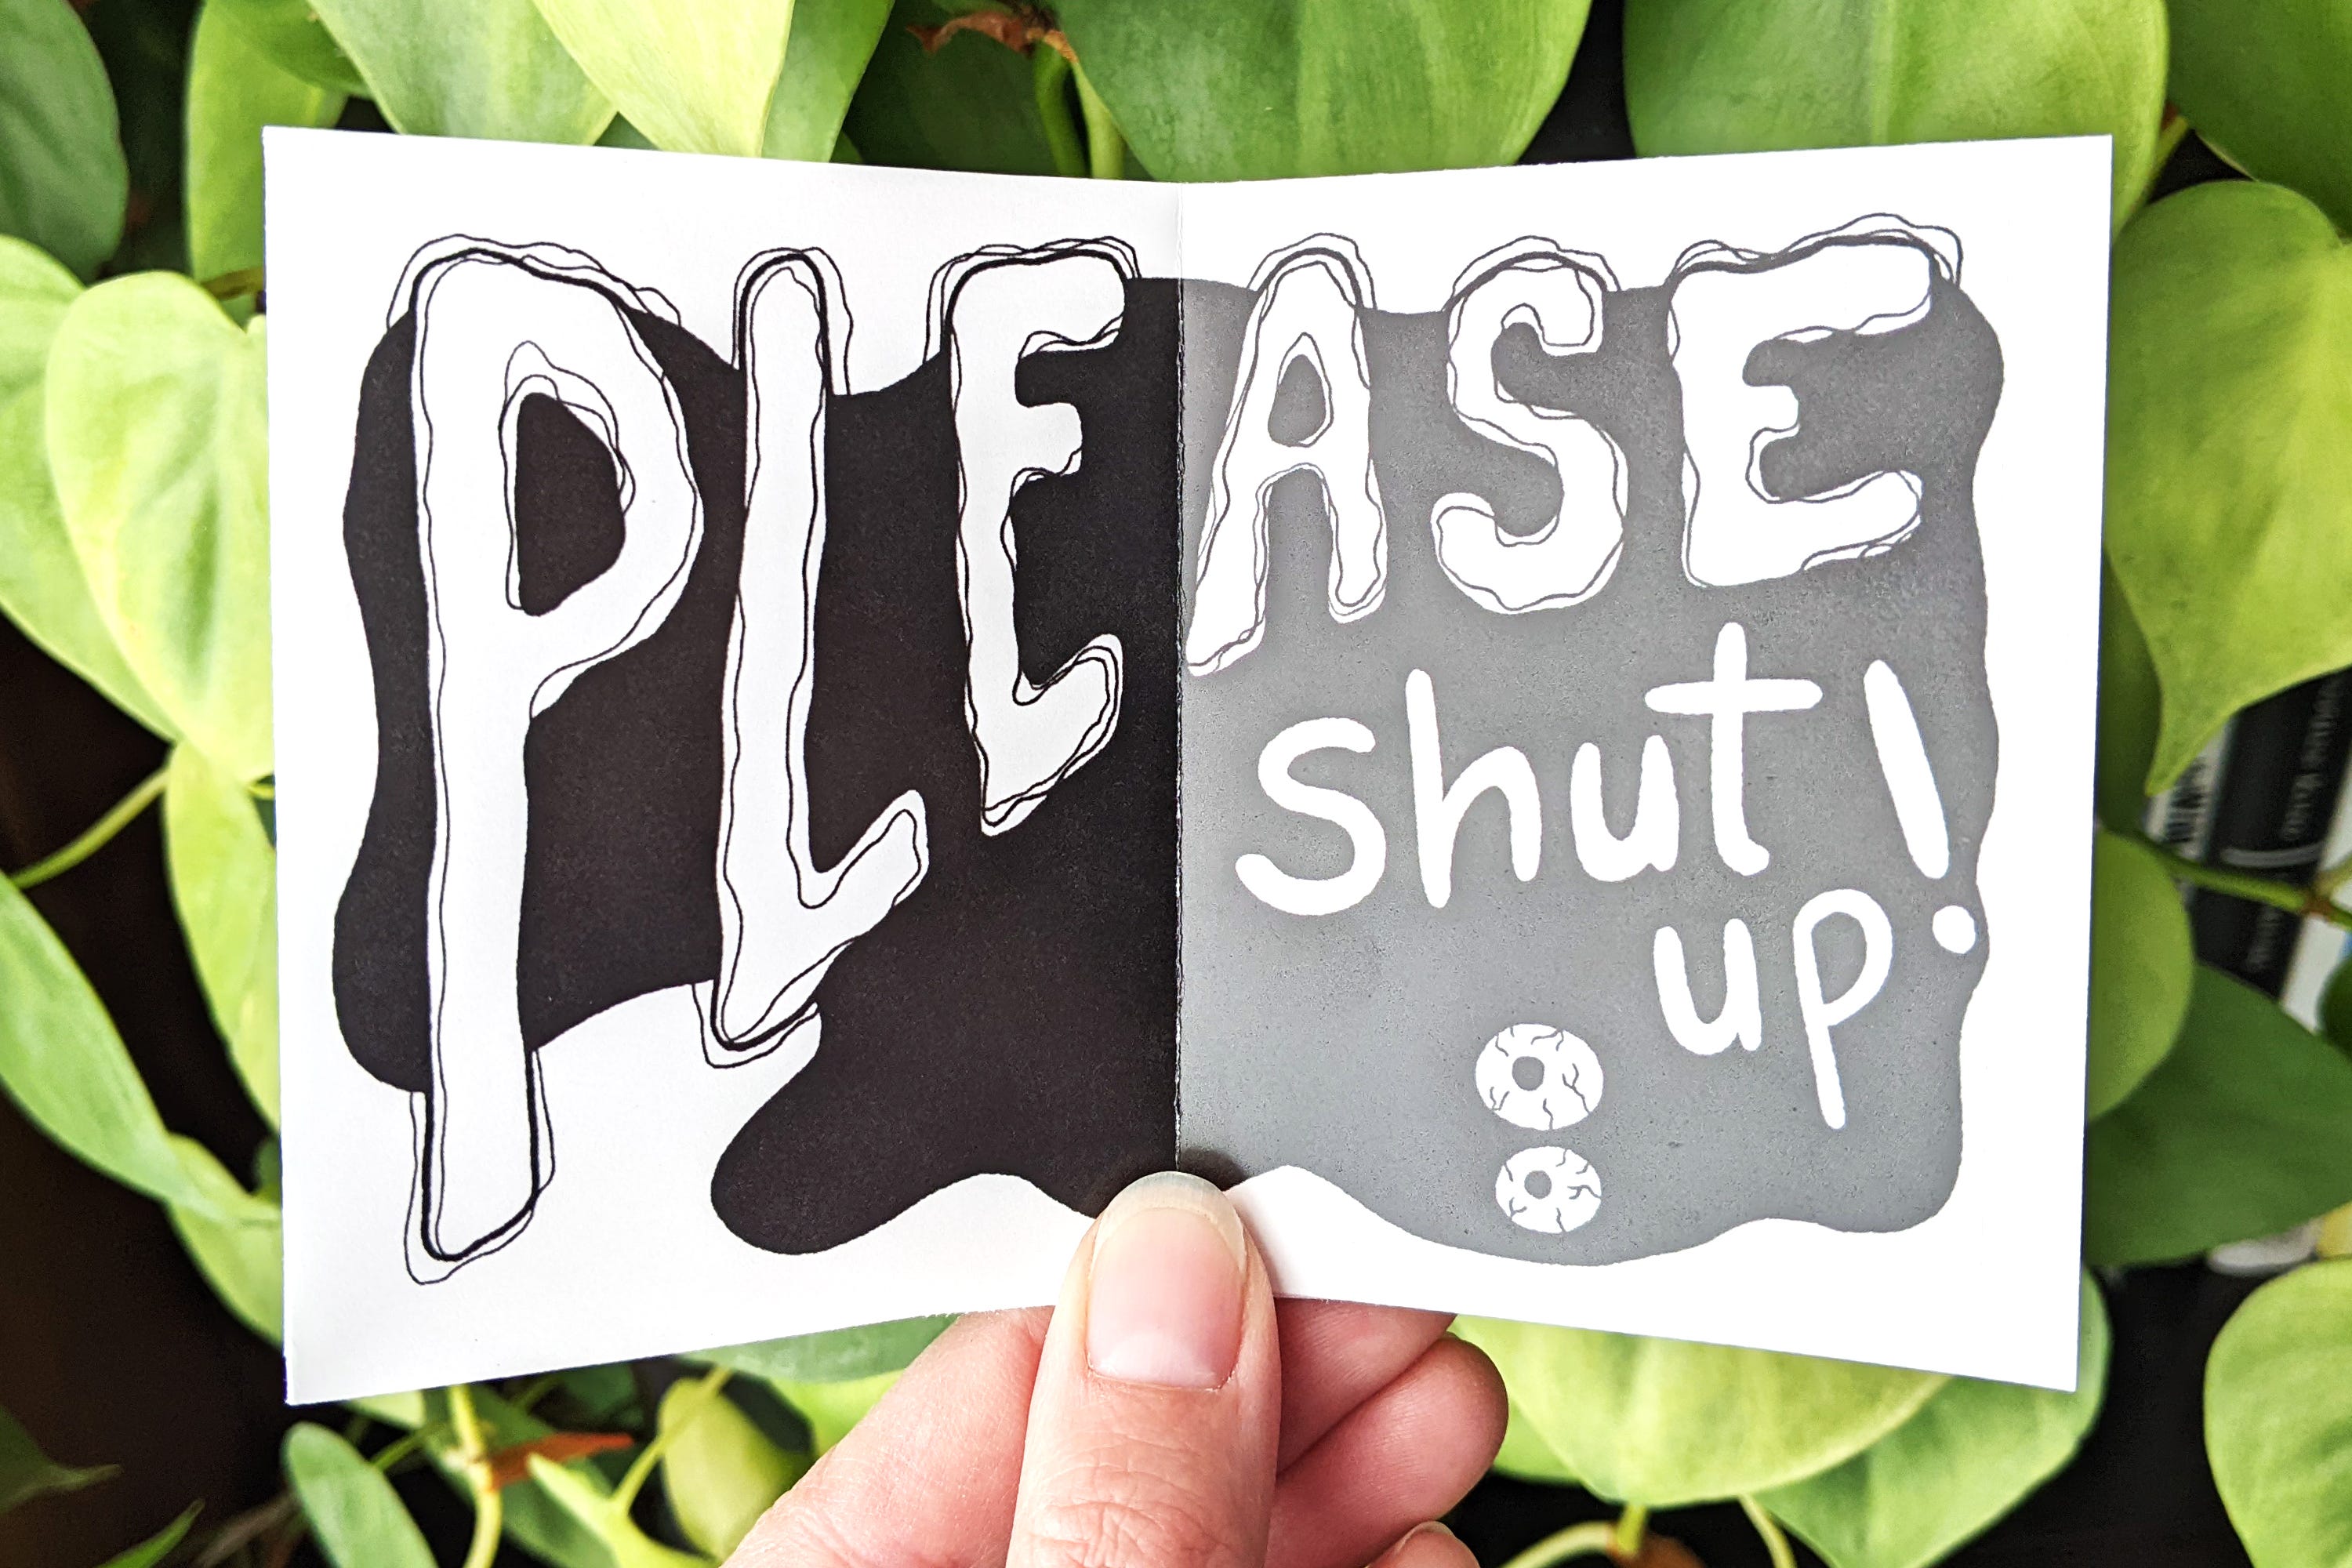 PLEASE
shut
up!